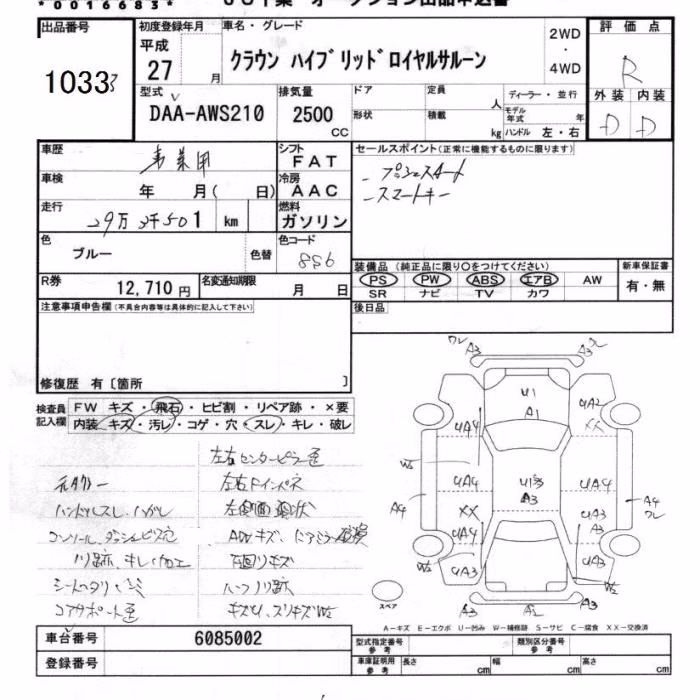 *0016683*
出品番号
1033
初度登録年月 車名・グレード
平成 27 月
クラウン ハイブリッドロイヤルサルーン
2WD
・
4WD
評価点
R
型式
DAA-AWS210
排気量
2500
CC
ドア 定員 人
形状 積載 kg
ディーラー・並行
モデル年式 年
ハンドル 左・右
外装 内装
D D
車歴
事業用
シフト
FAT
セールスポイント(正常に機能するものに限ります)
- プッシュスタート
- スマートキー
車検
年 月( 日)
冷房
AAC
走行
29万3千501 km
燃料
ガソリン
色
ブルー
色替
色コード
8S6
装備品 (純正品に限り○をつけてください)
PS PW ABS エアB AW
SR ナビ TV カワ
新車保証書
有・無
R券
12,710 円
名変通知期限
月 日
後日品
注意事項申告欄(不具合内容等は具体的に記入して下さい)
修復歴 有〔箇所 〕
検査員記入欄
FW キズ・飛石・ヒビ割・リペア跡・×要
内装・キズ・汚レ・コゲ・穴・スレ・キレ・破レ
左右センターピラー歪
元タクシー
左右ドインパネ
ハンドルスレ・ハガレ
コンソール、ダッシュビス穴
ノリ跡、キレ、加工
下回りキズ
シートヘタリ・シミ
ハーフノリ跡
コアサポート歪
ワレ A3 A3 ワレ
U1
A1
UA4 UA2
XX
W2
UA4 U1 A3 UA4
A4 A4 ワレ
XX UA3
UA4 A3
W2 UA3 UA3
W2
A3 A2 A3
スペア
A-キズ E-エクボ U-凹み W-補修跡 S-サビ C-腐食 XX-交換済
車台番号 6085002
登録番号
型式指定番号 参考
類別区分番号 参考
車庫証明用 参考 長さ cm 幅 cm 高さ cm